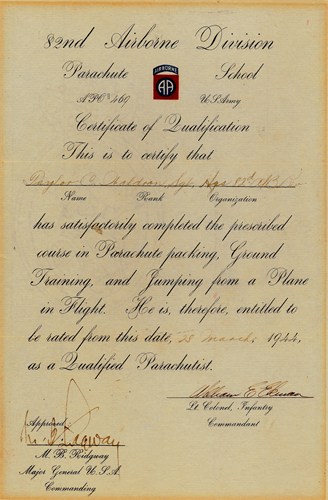 82nd Airborne Division
Parachute School
AIRBORNE
AA
APO 469 U.S. Army
Certificate of Qualification
This is to certify that
Sgt.
Name Rank Organization
has satisfactorily completed the prescribed
course in Parachute packing, Ground
Training, and Jumping from a Plane
in Flight. He is, therefore, entitled to
be rated from this date, 28 March 1944,
as a Qualified Parachutist.
William E.
Lt. Colonel, Infantry
Commandant
Approved:
M B Ridgway
M. B. Ridgway
Major General U.S.A.
Commanding